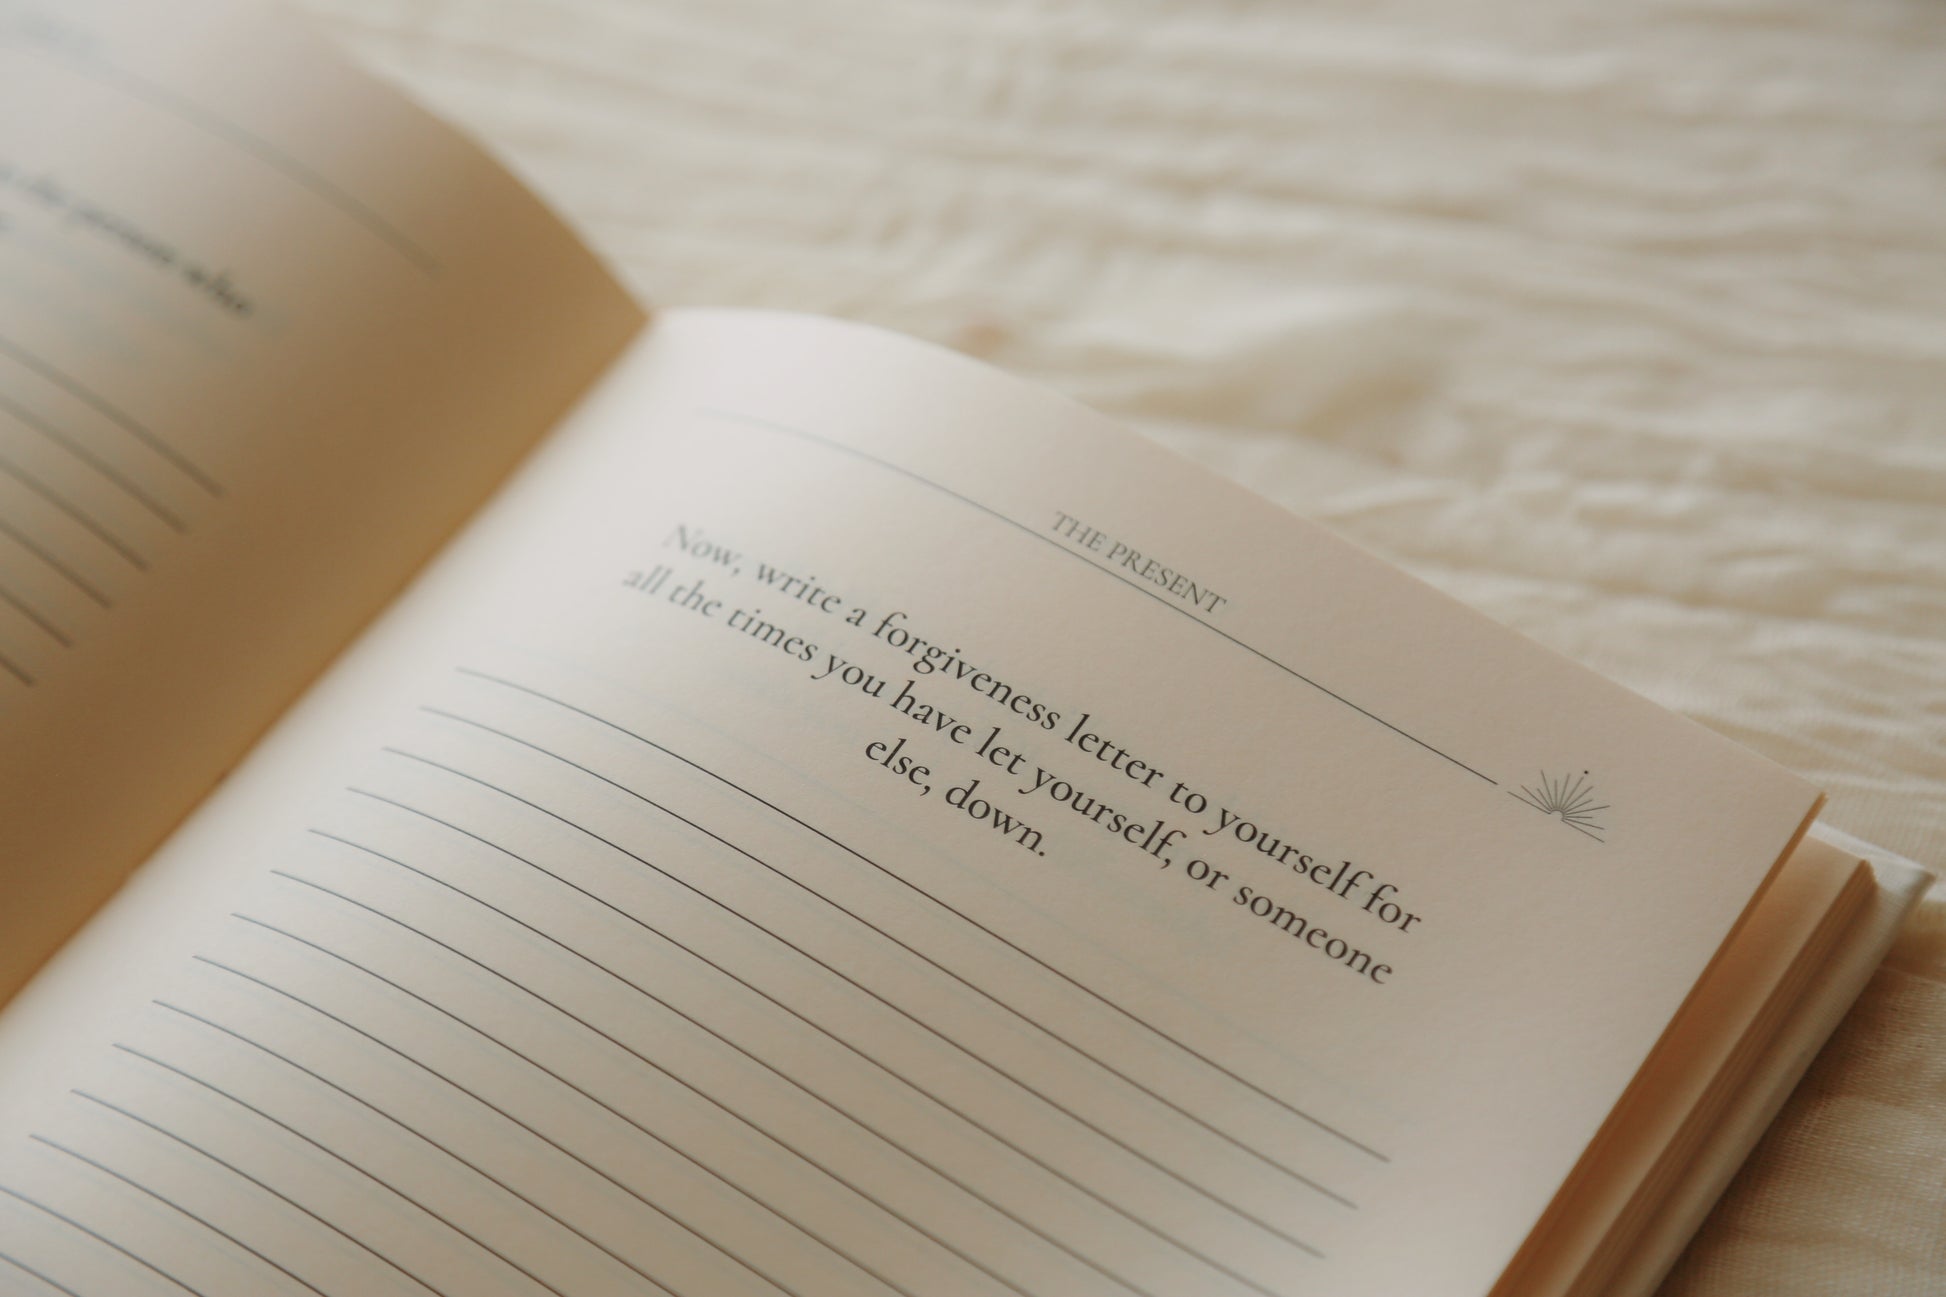 the person who
THE PRESENT
Now, write a forgiveness letter to yourself for
all the times you have let yourself, or someone
else, down.